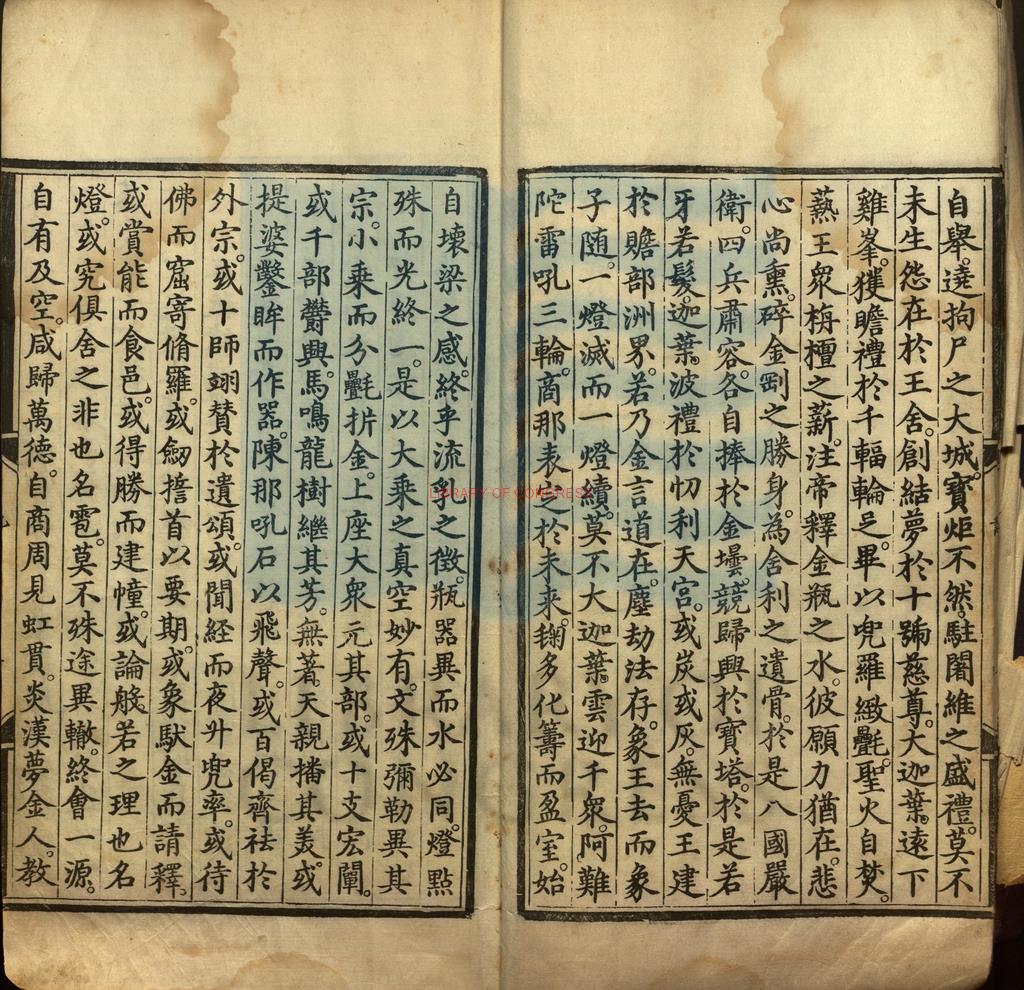 自舉。遶拘尸之大城。寶炬不然。駐闍維之盛禮。莫不
未生怨在於王舍。創結夢於十號慈尊。大迦葉。遠下
雞峯。獲瞻禮於千輻輪足。畢以兜羅緻㲲。聖火自焚。
爇王衆栴檀之薪。注帝釋金瓶之水。彼願力猶在。悲
心尚熏。碎金剛之勝身。為舍利之遺骨。於是八國嚴
衛。四兵肅容。各自捧於金壜。競歸興於寶塔。於是若
牙若髮。迦葉。波禮於忉利天宮。或炭或灰。無憂王建
於贍部洲界。若乃金言道在。塵劫法存。象王去而象
子随。一燈滅而一燈續。莫不大迦葉。雲迎千衆。阿難
陀雷吼三輪。商那表定於未来。毱多化籌而盈室。始
自壞梁之感。終乎流乳之徴。瓶器異而水必同。燈點
殊而光終一。是以大乘之真空妙有。文殊彌勒異其
宗。小乘而分㲲折金。上座大衆元其部。或十支宏闡。
或千部欝興。馬鳴龍樹繼其芳。無著。天親播其美。或
提婆鑿眸而作器。陳那吼石以飛聲。或百偈齊祛於
外宗。或十師翊賛於遺頌。或聞経而夜升兜率。或待
佛而窟寄脩羅。或劒擔首以要期。或象馱金而請釋。
或賞能而食邑。或得勝而建幢。或論般若之理也名
燈。或究俱舍之非也名雹。莫不殊途異轍。終會一源。
自有及空。咸歸萬德。自商周見虹貫。炎漢夢金人。教
LIBRARY OF CONGRESS